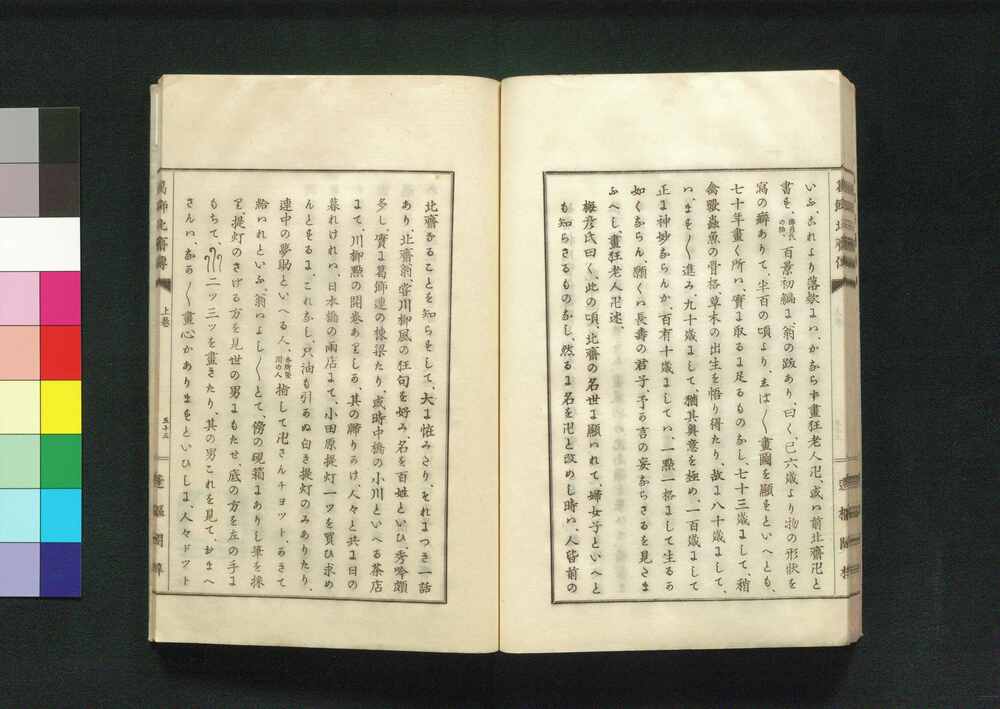 いふ、これより落款には、かならず畫狂老人卍、或は前北齋卍と
書せ、
百景初編に、翁の跋あり、曰く、己六歳より物の形状を
寫の癖ありて、半百の頃より、しば〱畫圖を顯すといへども、
七十年畫く所は、實に取るに足るものなし、七十三歳にして、稍
禽獸蟲魚の骨格、草木の出生を悟り得たり、故に八十歳にして
は、ます〱進み、九十歳にして、猶其奧意を極め、一百歳にして
正に神妙ならんか、百有十歳にしては、一點一格にして生るる
如くならん、願くは長壽の君子、予が言の妄ならざるを見たま
ふべし、畫狂老人卍述
梅彦氏曰く、此の頃、北齋の名世に顯はれて、婦女子といへど
も知らざるものなし、然るに名を卍と改めし時は、人皆前の
北齋なることを知らずして、大に怪みたり、それにつき一話
あり、北齋翁、嘗川柳風の狂句を好み、名を百姓といひ、秀吟頗
多し、實に葛飾連の棟梁たり、或時中橋の小川といへる茶店
にて、川柳點の開巻ありしが、其の歸りがけ、人々と共に日の
暮れければ、日本橋の雨店にて、小田原提灯一ツを買ひ求め
んとするに、これなし、只油も引ざる白き提灯のみありたり、
連中の夢助といへる人、
本所邊の人
捨して卍さんチョット、かきて
給はれといふ、翁はよし〱とて、傍の硯箱にありし筆を採
り、提灯のさげる方を見世の男にもたせ、底の方を左の手に
もちて、
二ツ三ツを畫きたり、其の男これを見て、おまへ
さんは、なか〱畫心がありますといひしに、人々ドット
葛飾北齋傳
上巻
五十三
蓬樞閣梓